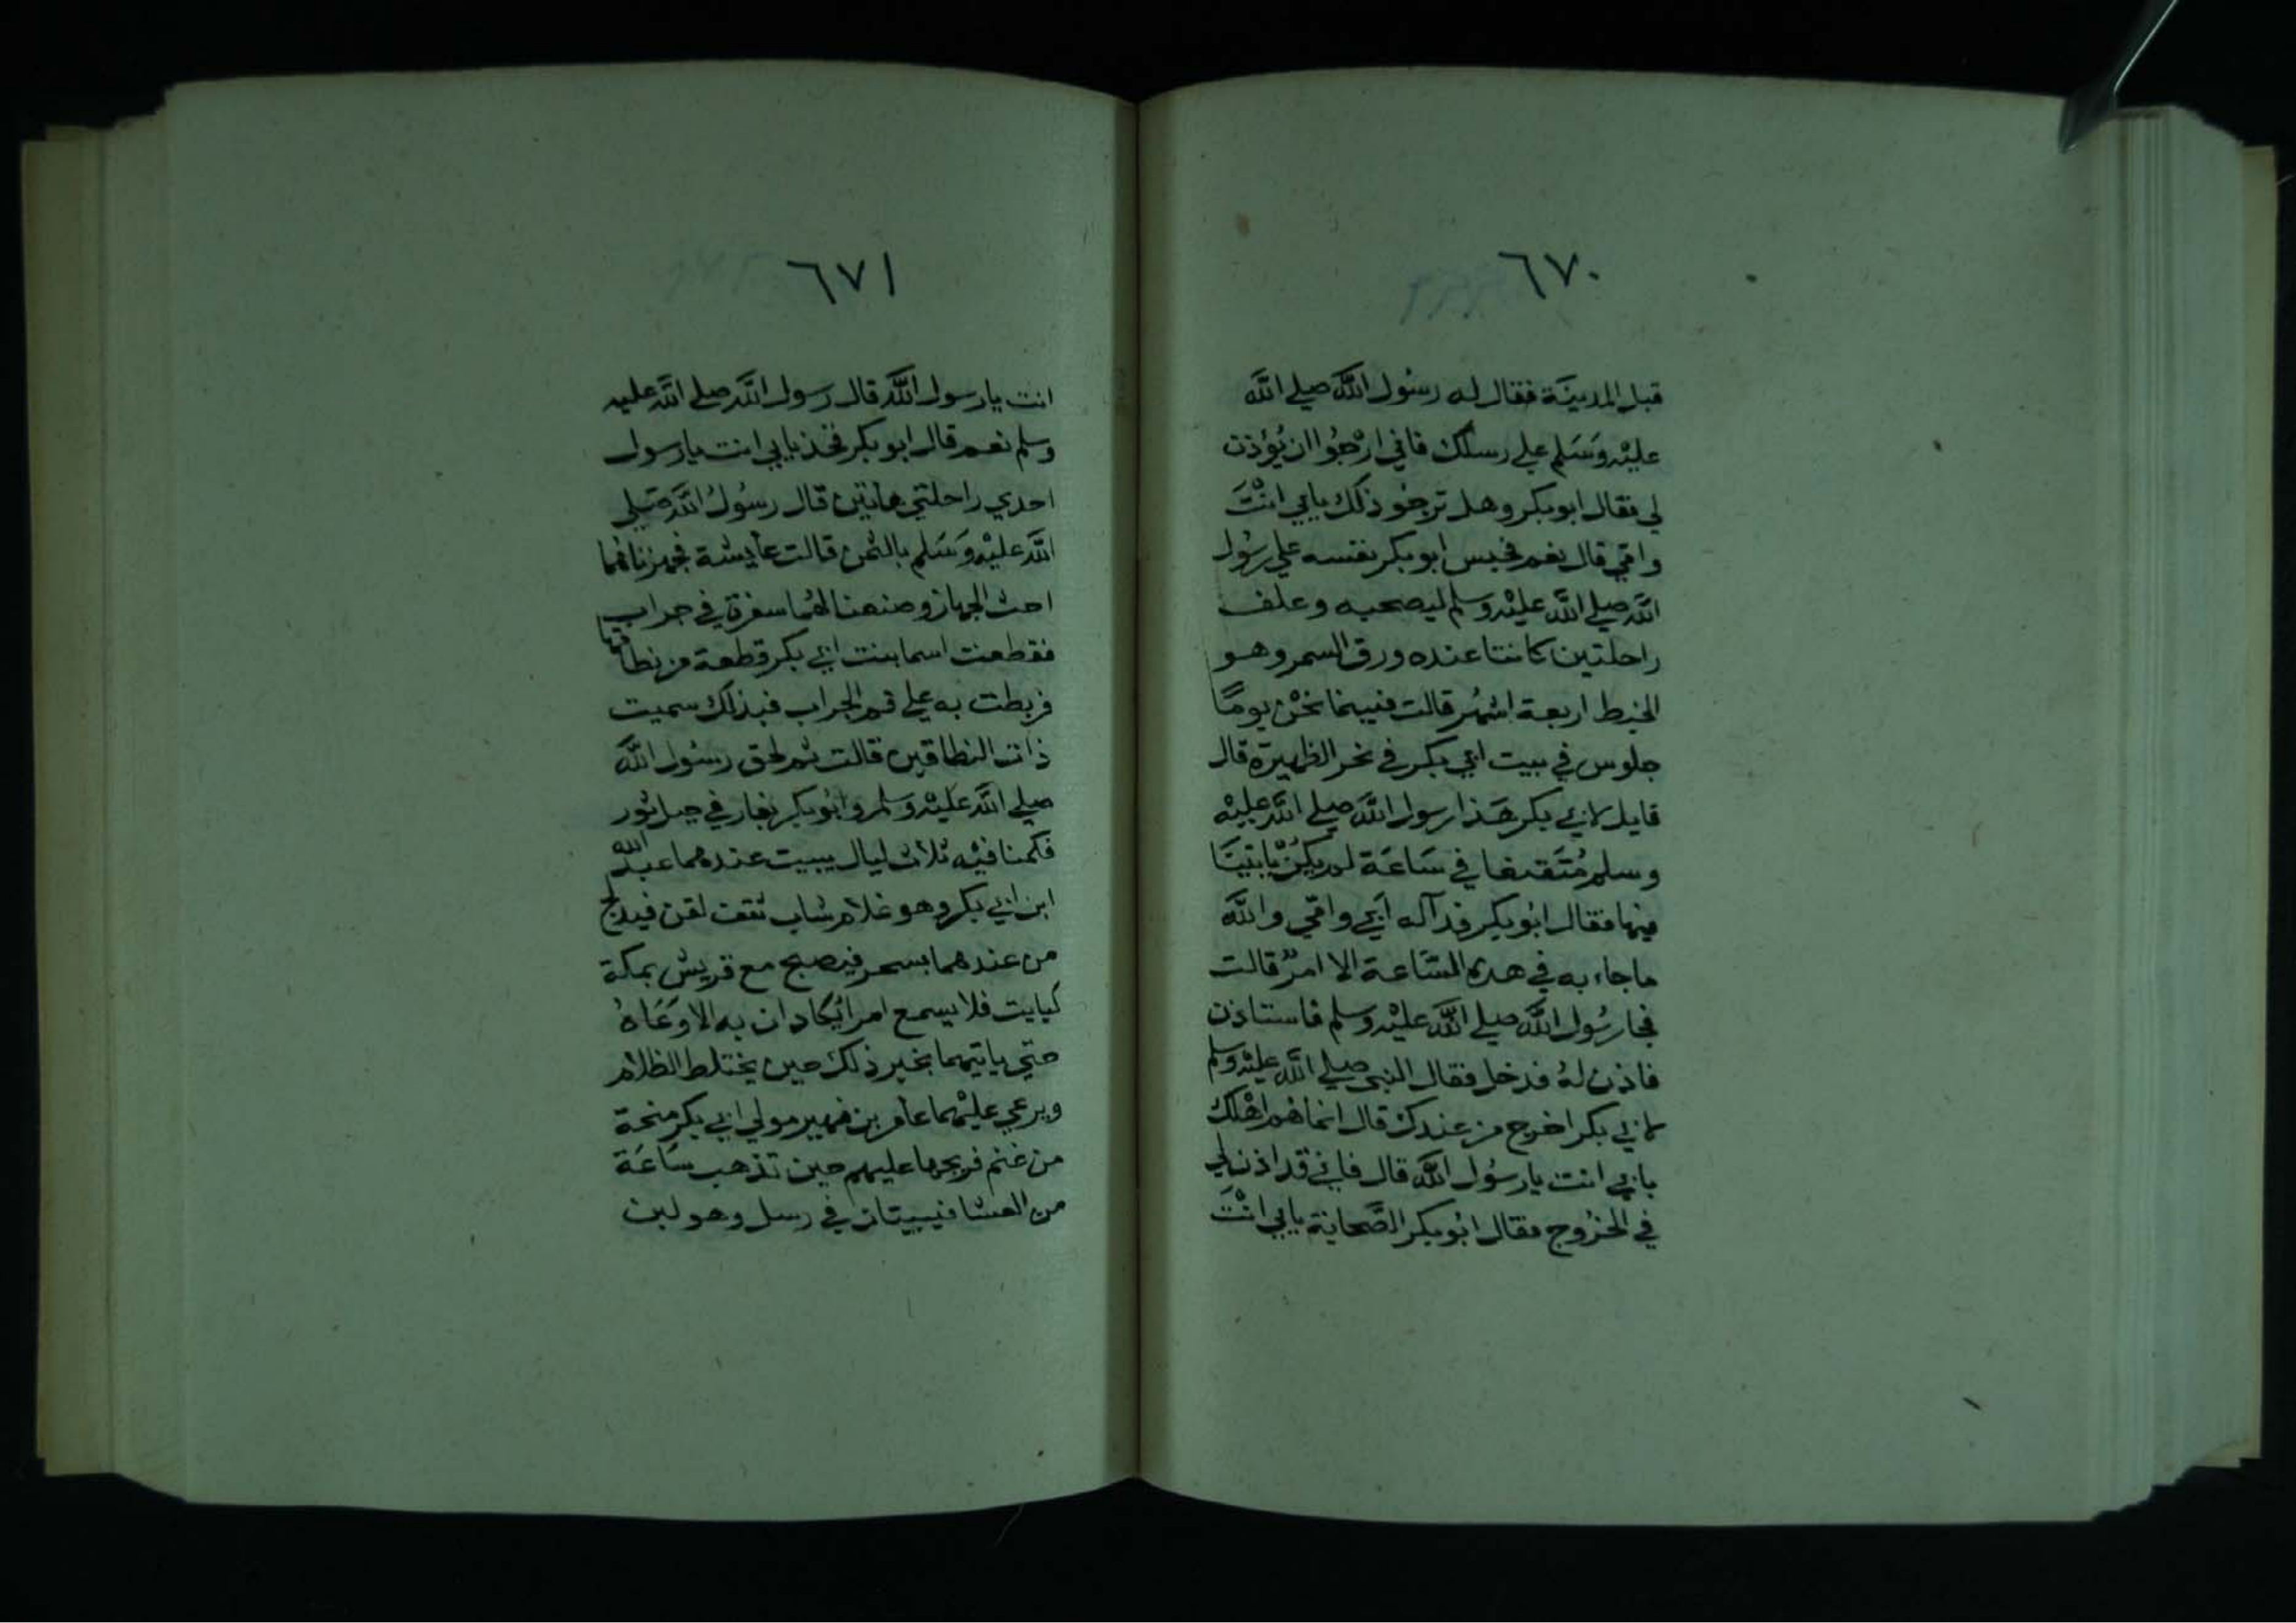 ٦٧٠
قبل المدينة فقال له رسُول اللَّه صلي اللَّه
عليْه وَسَلم علي رسلك فاني ارْجُوا ان يُؤذن
لي فقال ابوبكر وهل ترجُو ذلك بابي انْتَ
وامّي قال نعم فحبس ابو بكر نفسه علي رسُول
اللَّه صلي اللَّه عليْه وسلم ليصحبه وعلف
راحلتين كانتا عنده ورق السمر وهو
الخبط اربعة اشهُر قالت فبينما نحْن يومًا
جلوس في بيت ابي بكر في نحر الظهيرة قال
قايل لابي بكر هَذا رسول اللَّه صلي اللَّه عليْه
وسلم مُتَقنعا في سَاعَة لم يكنْ ياتيْنَا
فيها فقال ابُوبكر فدآ له أبي وامّي واللَّه
ماجاء به في هذه السَّاعة الا امرٌ قالت
فجا رسُول اللَّه صلي اللَّه عليْه وسلم فاستاذن
فاذن لهُ فدخل فقال النبي صلي اللَّه عليْه وسلم
لابي بكر اخرج من عندك قال انما هُم اهْلك
بابي انت يارسُول اللَّه قال فاني قد اذن لي
في الخرُوج فقال ابُوبكر الصَّحابة بابي انْتَ
٦٧١
انت يارسول اللَّه قال رسول اللَّه صلي اللَّه عليه
وسلم نعم قال ابو بكر فخذ بابي انت يارسول
احدي راحلتي هاتين قال رسُولُ اللَّه صَلي
اللَّه عليْه وَسَلم بالثمن قالت عايشة فجهزناهما
احث الجهاز وصنعنا لهُما سفرة في جراب
فقطعت اسما بنت ابي بكر قطعة من نطاقها
فربطت به علي فم الجراب فبذلك سميت
ذات النطاقين قالت ثم لحق رسُول اللَّه
صلي اللَّه عليْه وسلم وابُوبكر بغار في جبل ثور
فكمنا فيْه ثلاث ليال يبيت عندهما عبد الله
ابن ابي بكر وهو غلام شاب ثقف لقن فيدلج
من عندهما بسحر فيصبح مع قريش بمكة
كبايت فلا يسمع امرا يُكادان به الا وَعَاهُ
حتي ياتيهما بخبر ذلك حين يختلط الظلام
ويرعي عليْهما عامر بن فهير مولي ابي بكر منحة
من غنم فريحها عليهم حين تذهب سَاعَة
من العشا فيبيتان في رسل وهو لبن